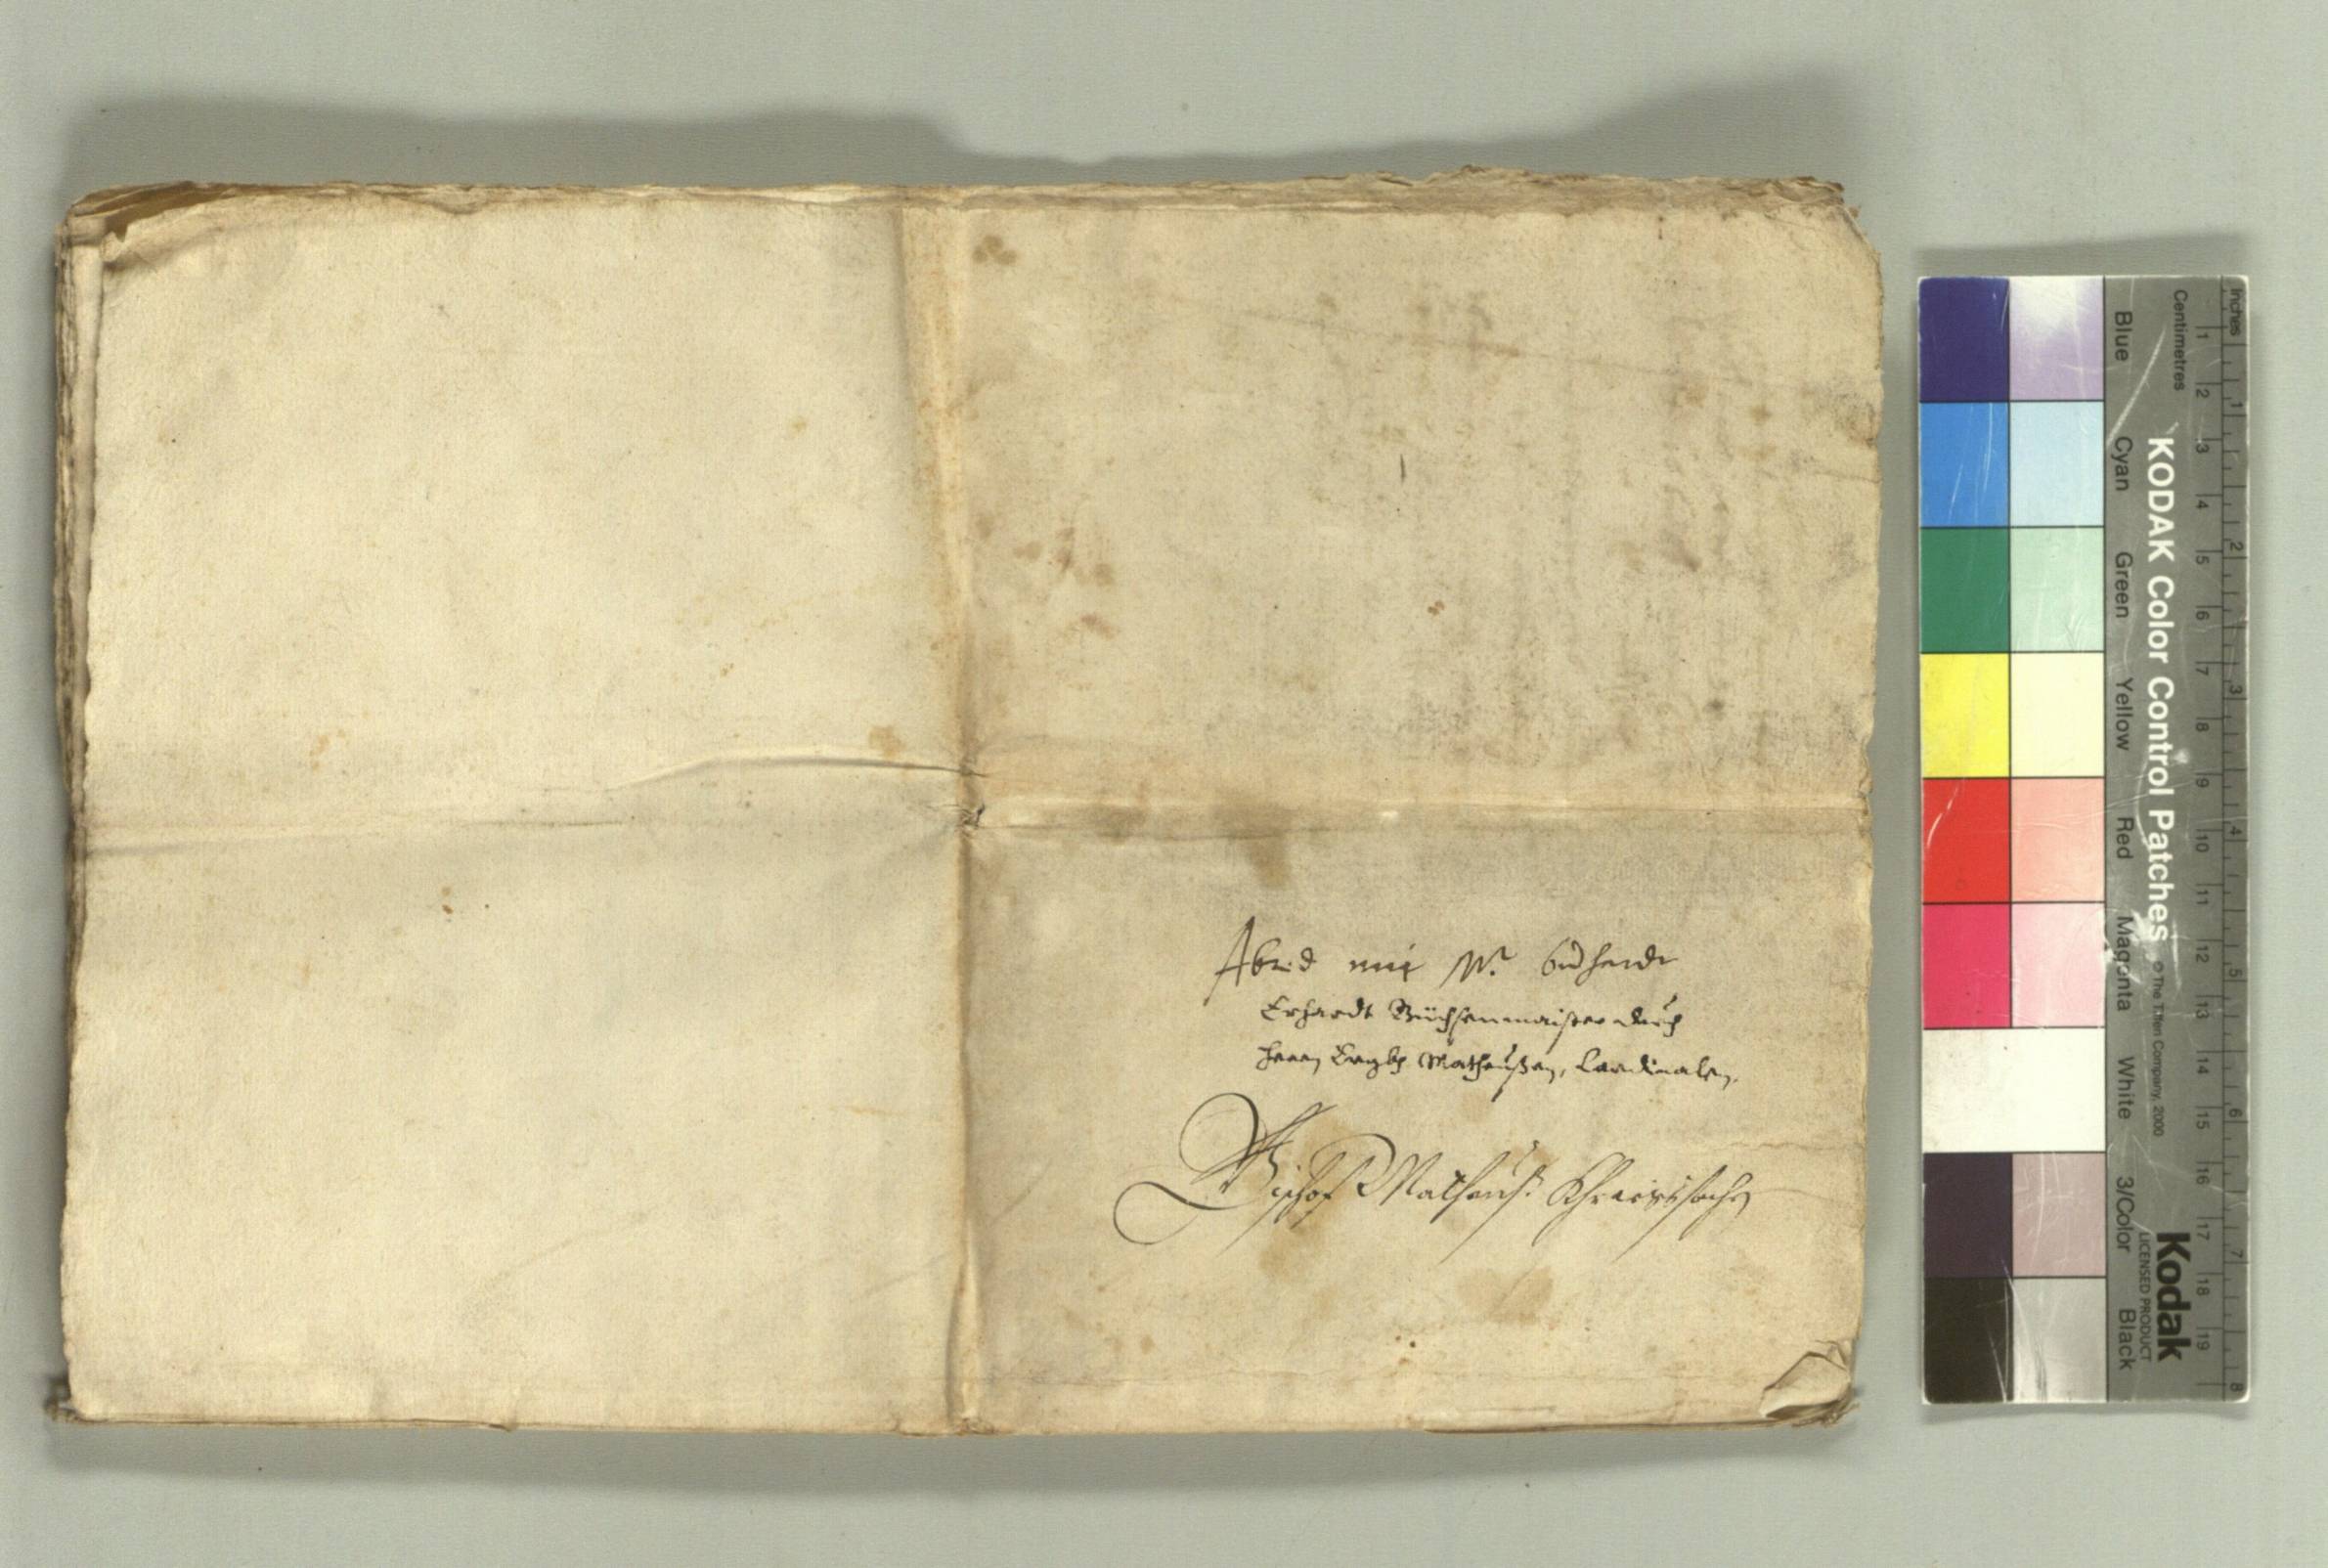 Abred mit Mr. Erhardt
Erhardt Büchsenmaister durch
Herrn Ertzb. Matheußen, Cardinalen,
Bischof Matheus Khriegssachen
Inches
Centimetres
KODAK Color Control Patches
© The Tiffen Company, 2000
Kodak
LICENSED PRODUCT
Blue
Cyan
Green
Yellow
Red
Magenta
White
3/Color
Black
1 2 3 4 5 6 7 8 9 10 11 12 13 14 15 16 17 18 19
1 2 3 4 5 6 7 8